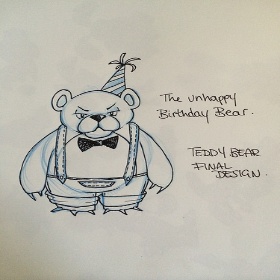 The unhappy
Birthday Bear.
TEDDY BEAR
FINAL
DESIGN.